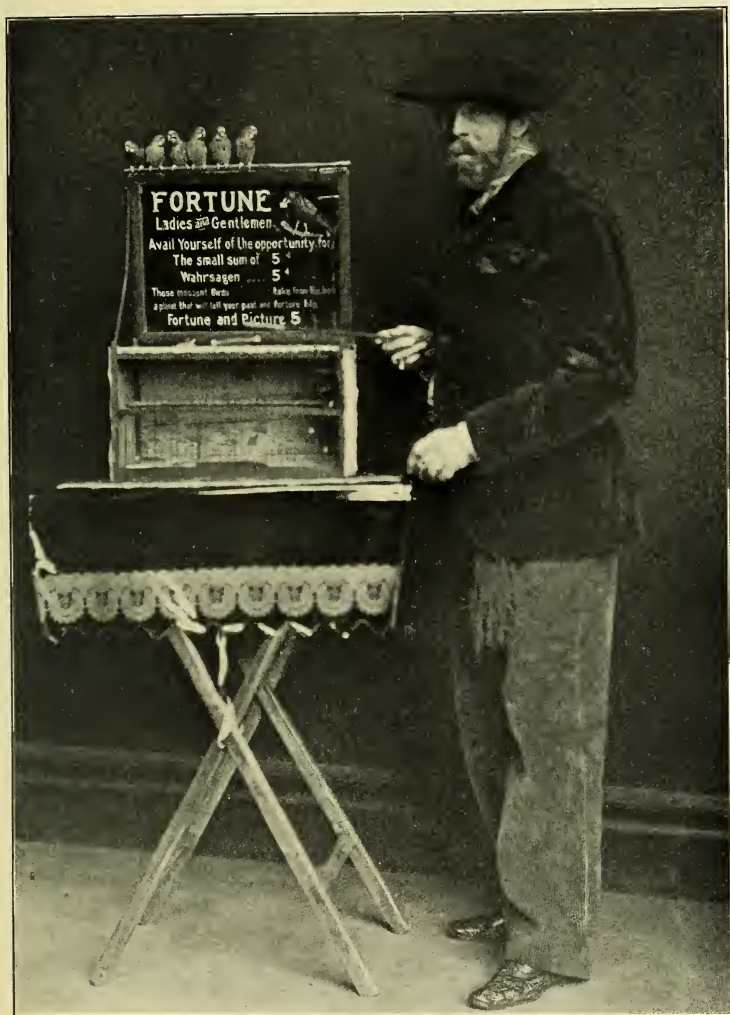 FORTUNE
Ladies and Gentlemen
Avail Yourself of the opportunity for
The small sum of 5¢
Wahrsagen ..... 5¢
These innocent Birds take from the
a planet that will tell your past and forture
Fortune and Picture 5